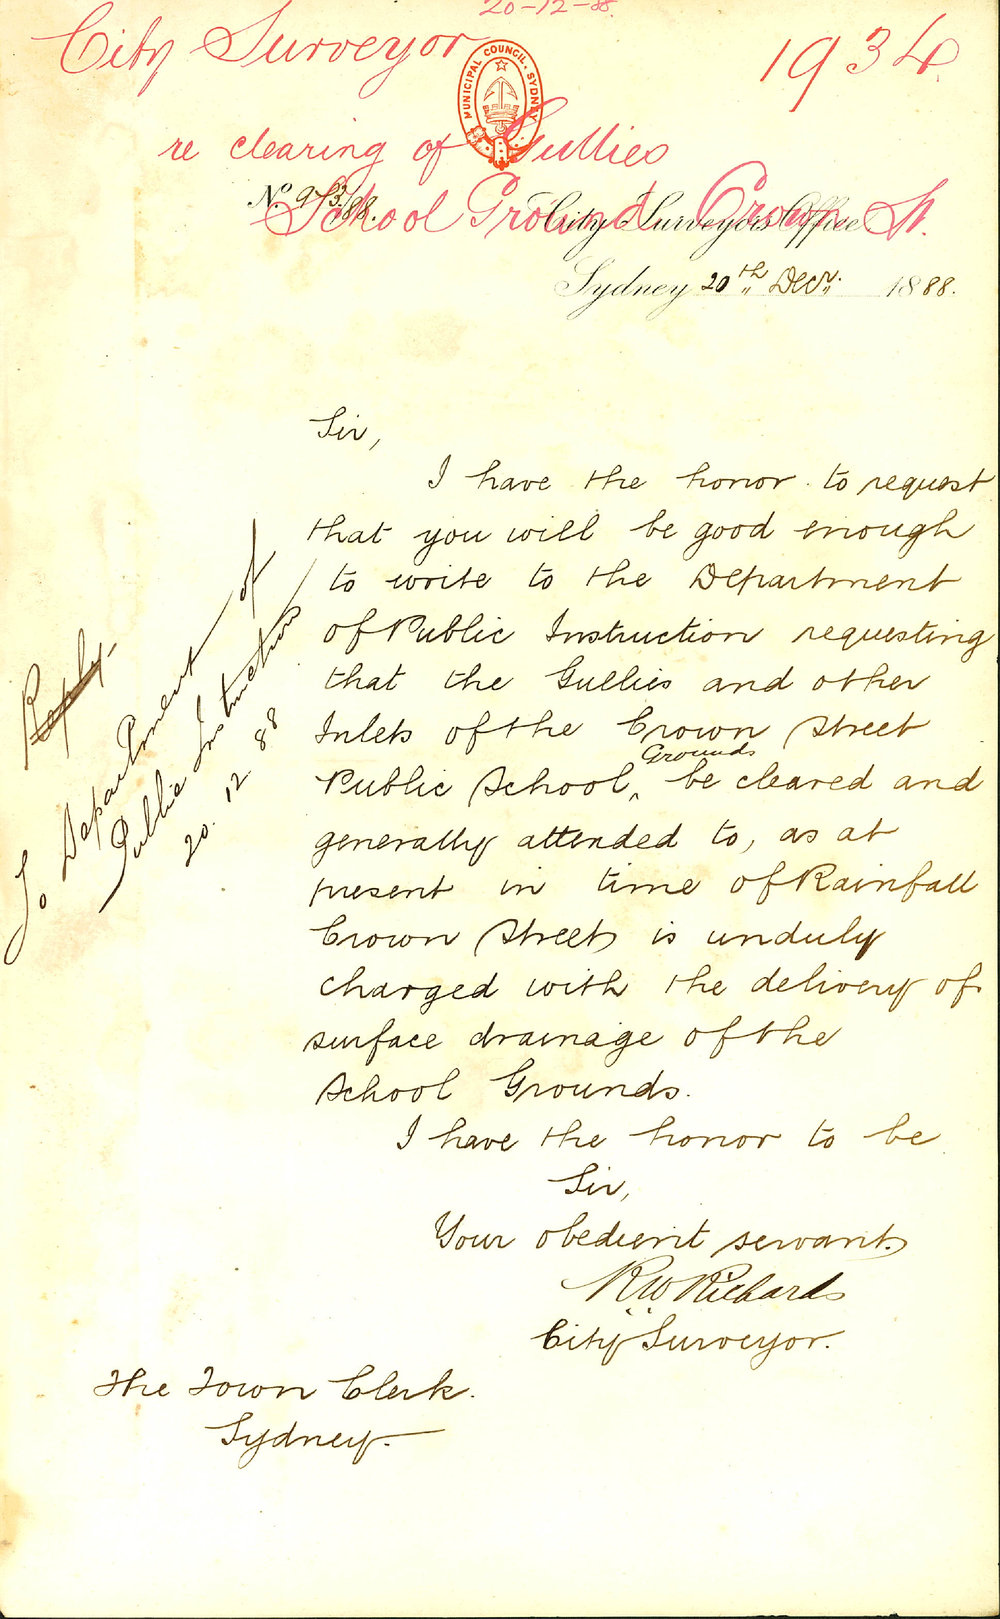 20-12-88
City Surveyor
1934
MUNICIPAL COUNCIL. SYDNEY
re clearing of Gullies
School Ground Crown St.
No. 973/88.
City Surveyor's Office
Sydney 20th Decr. 1888.
Sir,
I have the honor to request
that you will be good enough
to write to the Department
of Public Instruction requesting
that the Gullies and other
Inlets of the Crown Street
Public School, Grounds be cleared and
generally attended to, as at
present in time of Rainfall
Crown Street is unduly
charged with the delivery of
surface drainage of the
School Grounds.
I have the honor to be
Sir,
Your obedient servant.
R W Richards
City Surveyor.
The Town Clerk.
Sydney.
Reply.
To Department of
Public Instruction
20. 12 88